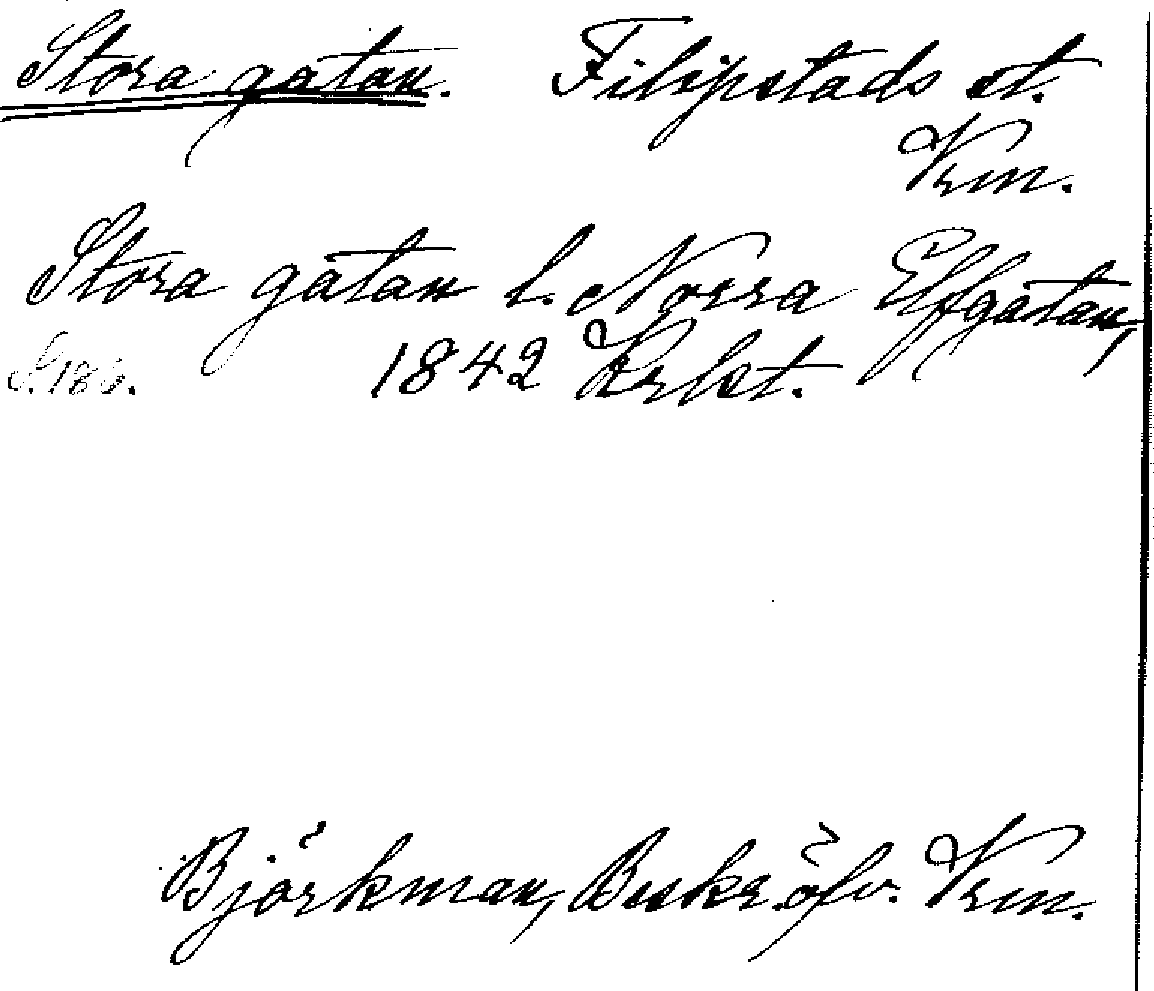 Stora gatan. Filipstads st.
Vrm.
Stora gatan l. Norra Elfgatan,
S. 186. 1842 Krbst.
Björkman, Beskr. öfv. Vrm.